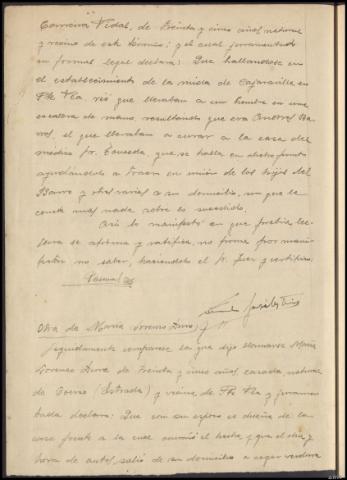 Carmena Vidal, de treinta y cinco años, natural
y vecino de este término; y el cual juramentado
en forma legal declara: Que hallandose en
el establecimiento de la viuda de Cajaraville en
vió que llevaban a un hombre en una
escalera de mano, resultando que era Andres Ba-
rros, el que llevaban a curar a la casa del
médico Sr. que se halla en dicho punto
ayudandoles a traer en unión de los hijos del
Barro y otros varios a su domicilio, sin que le
conste más nada sobre lo sucedido.
Así lo manifestó en que previa lec-
tura se afirma y ratifica, no firma por mani-
festar no saber, haciendolo el Sr. Juez y certifico.
Otra de Maria Lorenzo Dura
Seguidamente comparece la que dijo llamarse María
Lorenzo Dura de treinta y cinco años casada, natural
de (Estrada) y vecina de y juramen-
tada declara: Que con su esposo es dueña de la
casa frente a la cual ocurrió el hecho y que el dia y
hora de autos, salió de su domicilio a coger verdura